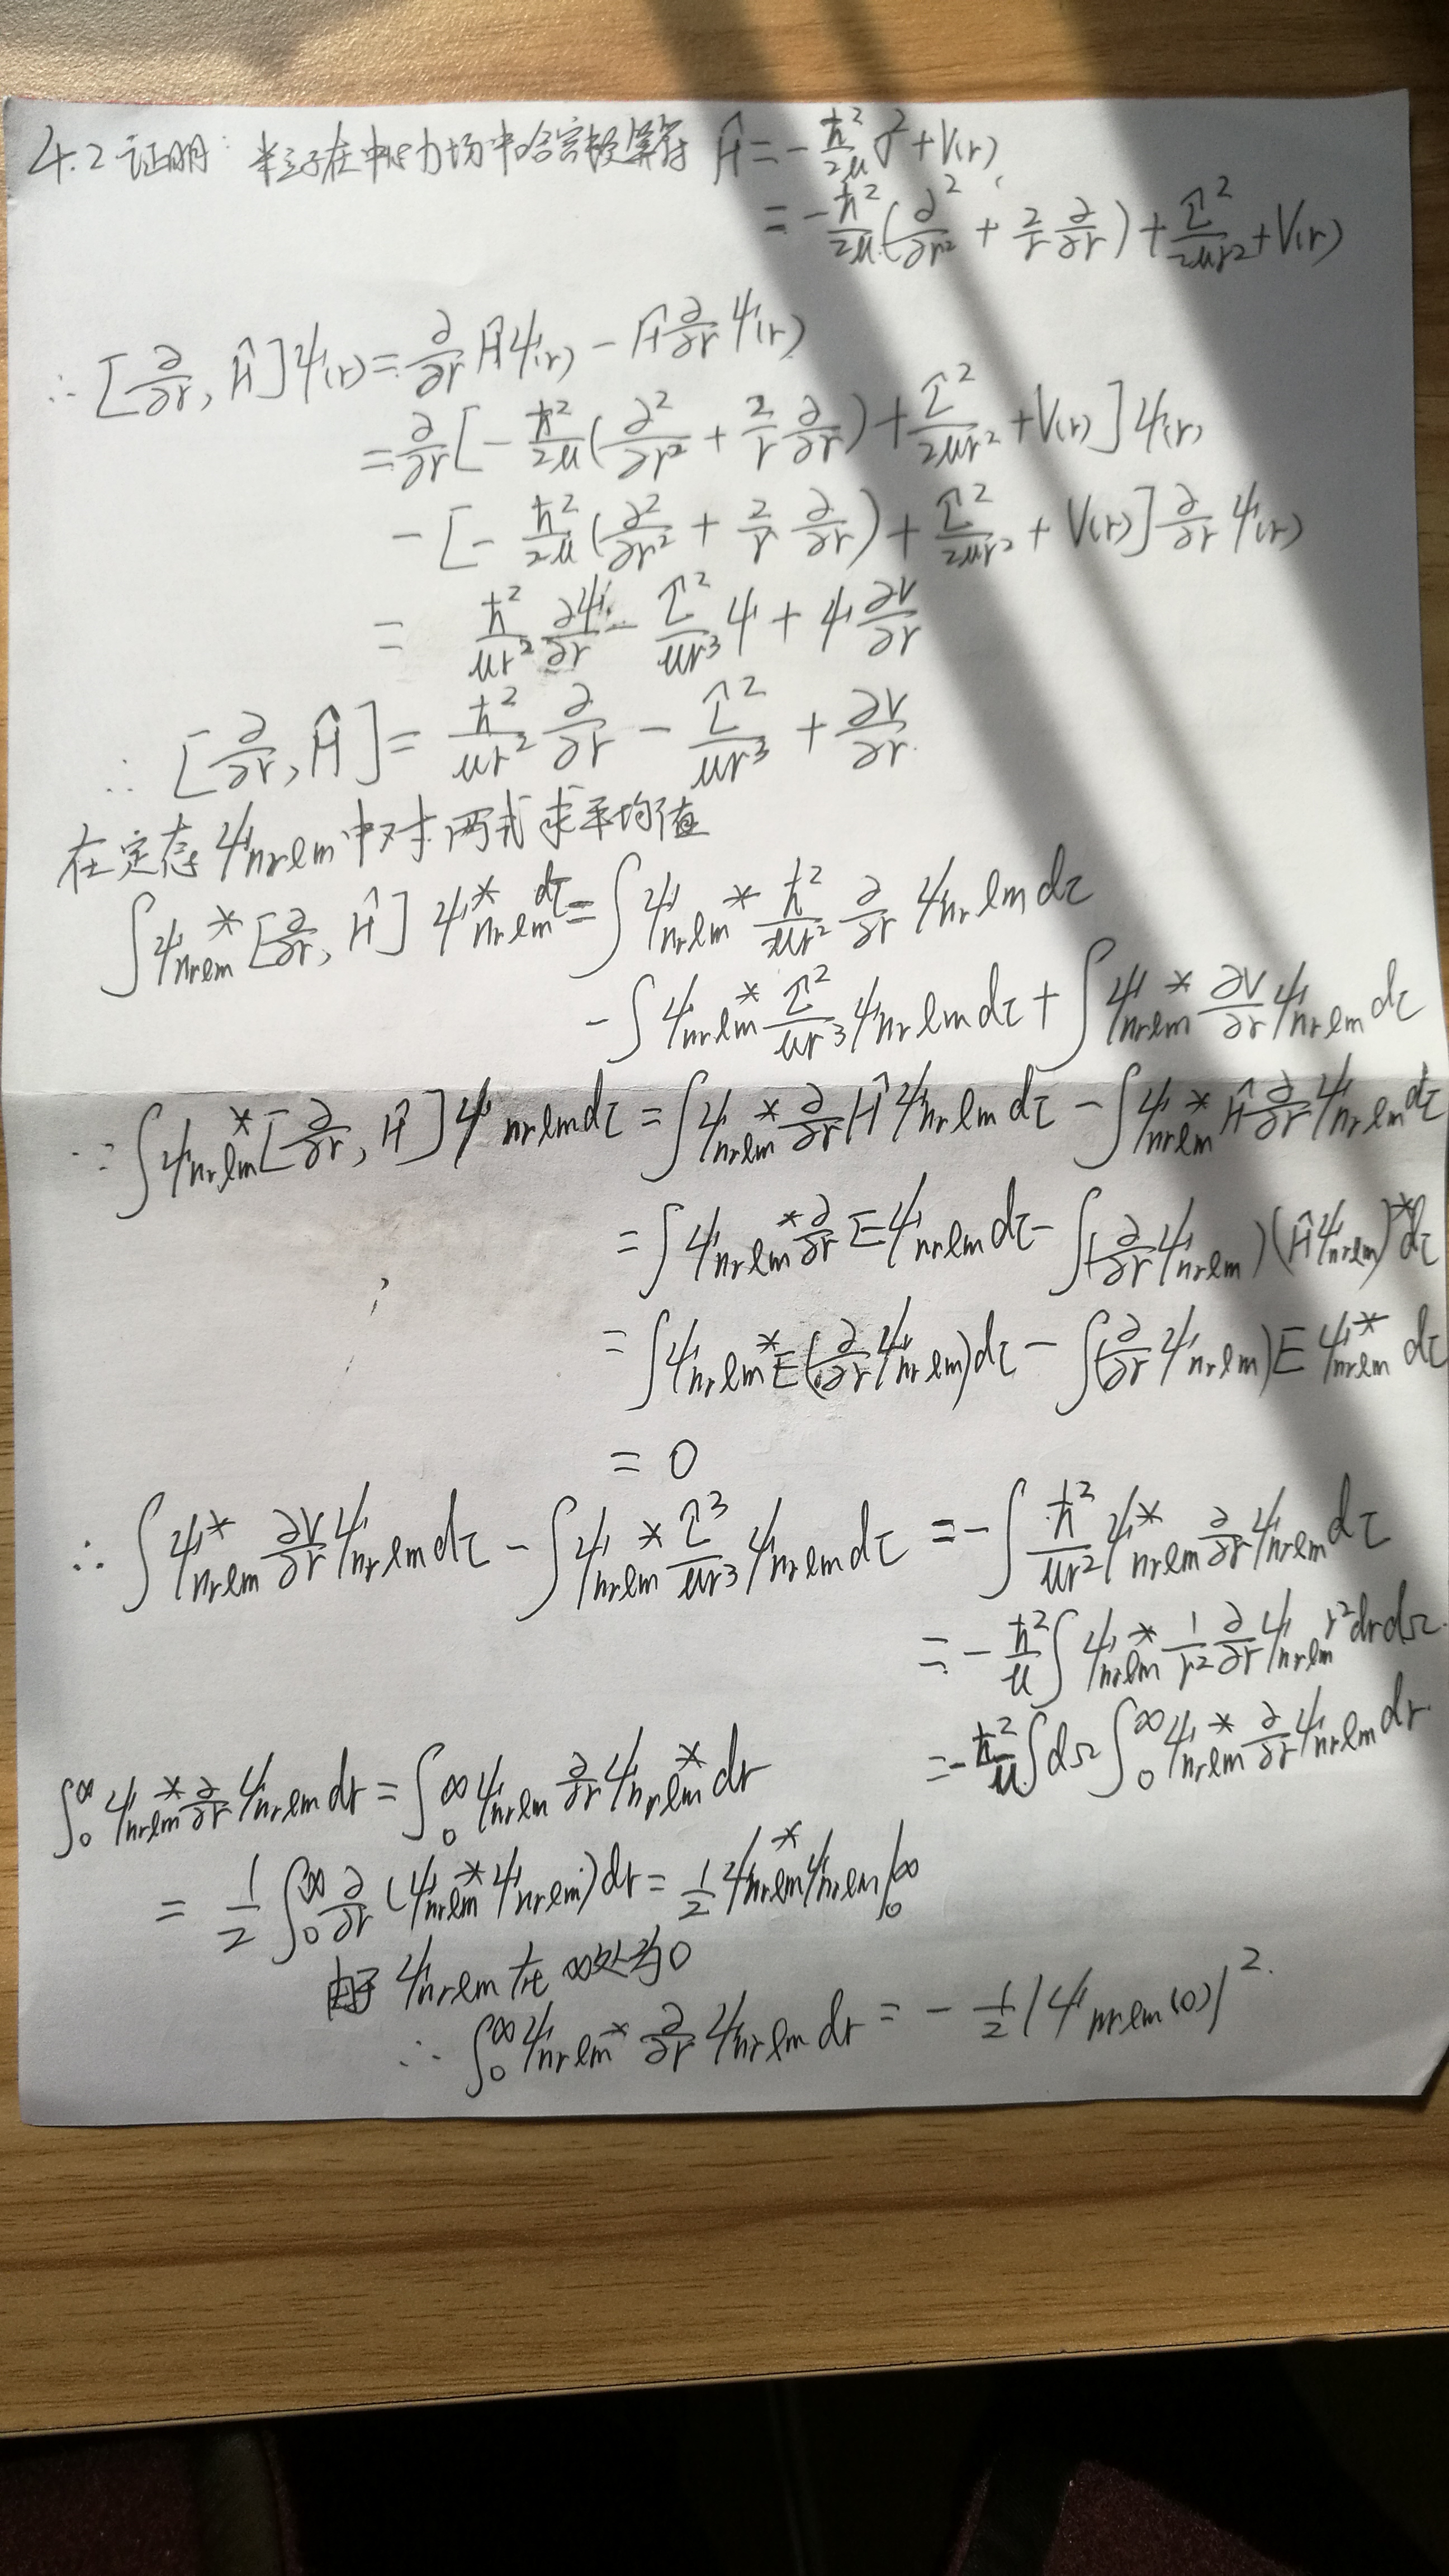 4.2 证明: 粒子在中心力场中哈密顿算符 Ĥ = -ħ²/2μ ∇² + V(r)
= -ħ²/2μ (∂²/∂r² + 2/r ∂/∂r) + L̂²/2μr² + V(r)
∴ [∂/∂r, Ĥ]ψ(r) = ∂/∂r Ĥψ(r) - Ĥ ∂/∂r ψ(r)
= ∂/∂r [-ħ²/2μ (∂²/∂r² + 2/r ∂/∂r) + L̂²/2μr² + V(r)] ψ(r)
- [-ħ²/2μ (∂²/∂r² + 2/r ∂/∂r) + L̂²/2μr² + V(r)] ∂/∂r ψ(r)
= ħ²/μr² ∂ψ/∂r - L̂²/μr³ ψ + ψ ∂V/∂r
∴ [∂/∂r, Ĥ] = ħ²/μr² ∂/∂r - L̂²/μr³ + ∂V/∂r
在定态 ψnrlm 中对两式求平均值
∫ψnrlm* [∂/∂r, Ĥ] ψnrlm* dτ = ∫ψnrlm* ħ²/μr² ∂/∂r ψnrlm dτ
- ∫ψnrlm* L̂²/μr³ ψnrlm dτ + ∫ψnrlm* ∂V/∂r ψnrlm dτ
∵ ∫ψnrlm* [∂/∂r, Ĥ] ψnrlm dτ = ∫ψnrlm* ∂/∂r Ĥψnrlm dτ - ∫ψnrlm* Ĥ ∂/∂r ψnrlm dτ
= ∫ψnrlm* ∂/∂r Eψnrlm dτ - ∫(∂/∂r ψnrlm)(Ĥψnrlm)* dτ
= ∫ψnrlm* E(∂/∂r ψnrlm) dτ - ∫(∂/∂r ψnrlm) E ψnrlm* dτ
= 0
∴ ∫ψnrlm* ∂V/∂r ψnrlm dτ - ∫ψnrlm* L̂³/μr³ ψnrlm dτ = -∫ħ²/μr² ψnrlm* ∂/∂r ψnrlm dτ
= -ħ²/μ ∫ψnrlm* 1/r² ∂/∂r ψnrlm r² dr dΩ
= -ħ²/μ ∫dΩ ∫₀^∞ ψnrlm* ∂/∂r ψnrlm dr
∫₀^∞ ψnrlm* ∂/∂r ψnrlm dr = ∫₀^∞ ψnrlm ∂/∂r ψnrlm* dr
= 1/2 ∫₀^∞ ∂/∂r (ψnrlm* ψnrlm) dr = 1/2 ψnrlm* ψnrlm |₀^∞
由于 ψnrlm 在 ∞处为0
∴ ∫₀^∞ ψnrlm* ∂/∂r ψnrlm dr = -1/2 |ψnrlm(0)|²